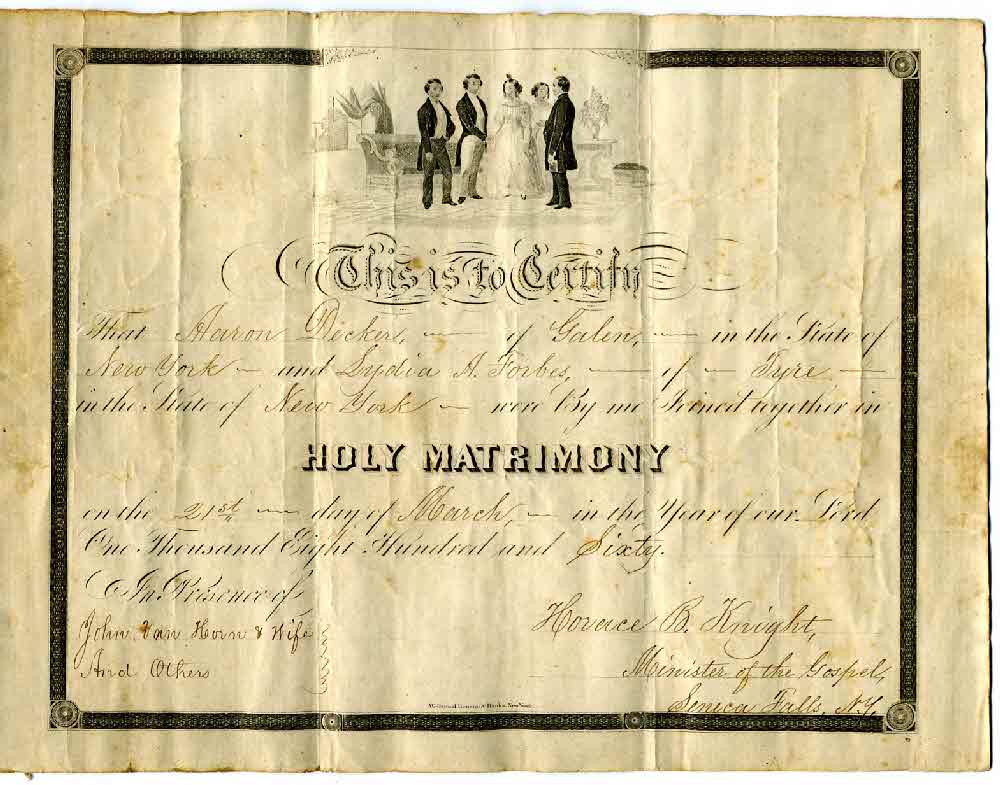 This is to Certify
That Aaron Decker, — of Galen, — in the State of
New York — and Lydia A. Forbes, — of — Tyre —
in the State of New York — were By me Joined together in
HOLY MATRIMONY
on the 21st — day of March, — in the Year of our Lord
One Thousand Eight Hundred and Sixty.
In Presence of
John Van Horn & Wife
And Others
Horace B. Knight,
Minister of the Gospel,
Seneca Falls, N.Y.
New York